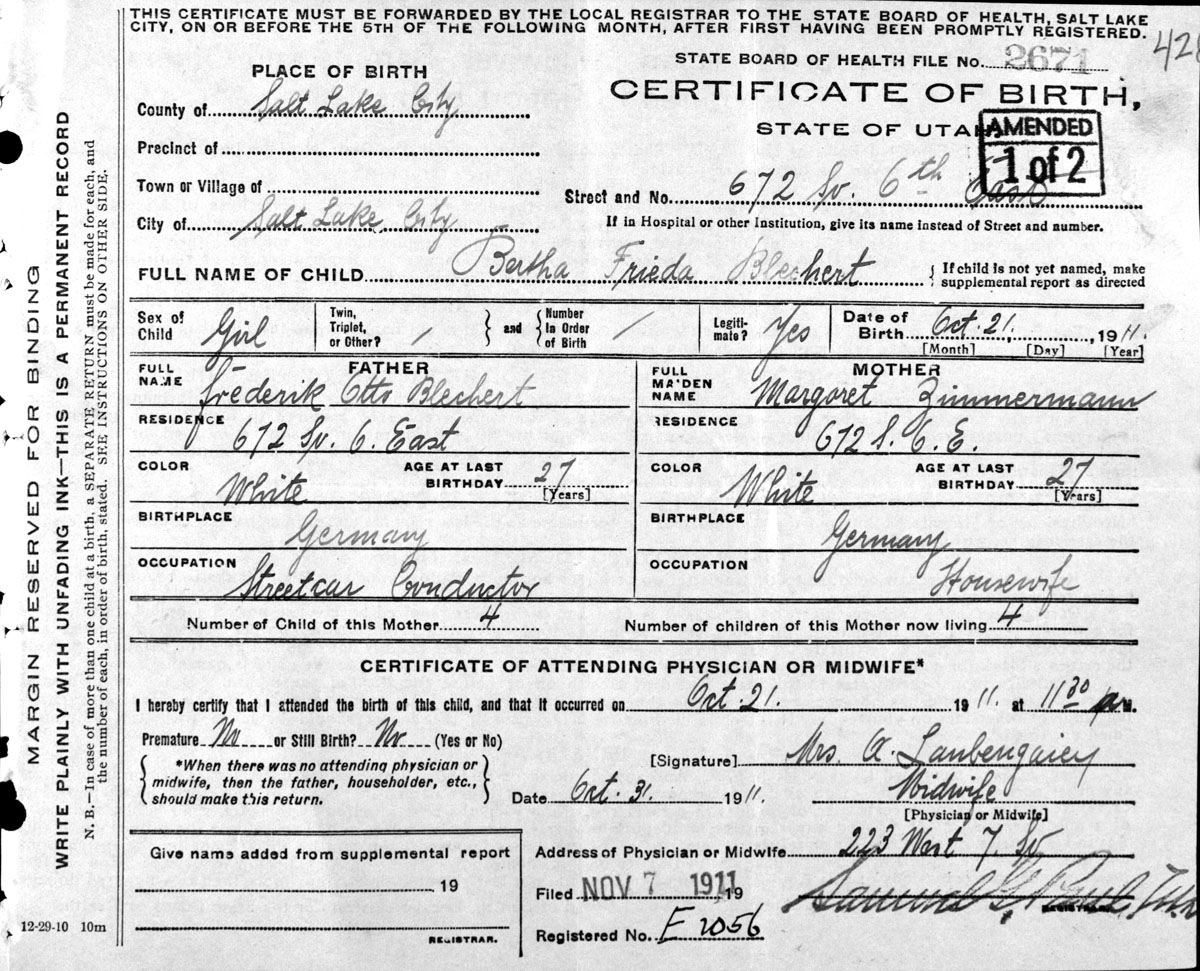 THIS CERTIFICATE MUST BE FORWARDED BY THE LOCAL REGISTRAR TO THE STATE BOARD OF HEALTH, SALT LAKE
CITY, ON OR BEFORE THE 5TH OF THE FOLLOWING MONTH, AFTER FIRST HAVING BEEN PROMPTLY REGISTERED.
STATE BOARD OF HEALTH FILE No. 2671
PLACE OF BIRTH
CERTIFICATE OF BIRTH,
County of Salt Lake City
STATE OF UTAH
AMENDED
1 of 2
Precinct of
Town or Village of
Street and No. 672 So. 6th East
City of Salt Lake City
If in Hospital or other Institution, give its name instead of Street and number.
FULL NAME OF CHILD Bertha Frieda Blechert { If child is not yet named, make supplemental report as directed
Sex of Child Girl Twin, Triplet, or Other? / } and { Number In Order of Birth / Legiti-mate? Yes Date of Birth Oct. 21. , 1911.
[Month] [Day] [Year]
FATHER
FULL NAME Frederik Otto Blechert
RESIDENCE 672 So. 6. East
COLOR White AGE AT LAST BIRTHDAY 27 [Years]
BIRTHPLACE Germany
OCCUPATION Streetcar Conductor
MOTHER
FULL MAIDEN NAME Margaret Zimmermann
RESIDENCE 672 S. 6. E.
COLOR White AGE AT LAST BIRTHDAY 27 [Years]
BIRTHPLACE Germany
OCCUPATION Housewife
Number of Child of this Mother 4 Number of children of this Mother now living 4
CERTIFICATE OF ATTENDING PHYSICIAN OR MIDWIFE*
I hereby certify that I attended the birth of this child, and that it occurred on Oct. 21. 1911 at 11 30 M.
Premature No or Still Birth? No (Yes or No)
[Signature] Mrs. A.
{ *When there was no attending physician or
midwife, then the father, householder, etc.,
should make this return. }
Date Oct. 31. 1911.
Midwife
[Physician or Midwife]
Give name added from supplemental report
19
REGISTRAR.
Address of Physician or Midwife 223 West 7. So
Filed NOV 7 1911 19
Samuel G. Paul
REGISTRAR
Registered No. F 2056
12-29-10 10m
MARGIN RESERVED FOR BINDING
WRITE PLAINLY WITH UNFADING INK—THIS IS A PERMANENT RECORD
N. B.—In case of more than one child at a birth, a SEPARATE RETURN must be made for each, and
the number of each, in order of birth, stated. SEE INSTRUCTIONS ON OTHER SIDE.